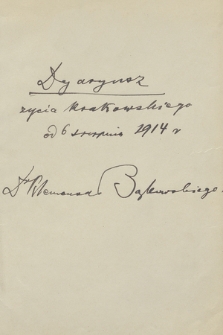 Dyaryusz
życia krakowskiego
od 6 sierpnia 1914 r
Dr Klemensa Bąkowskiego.